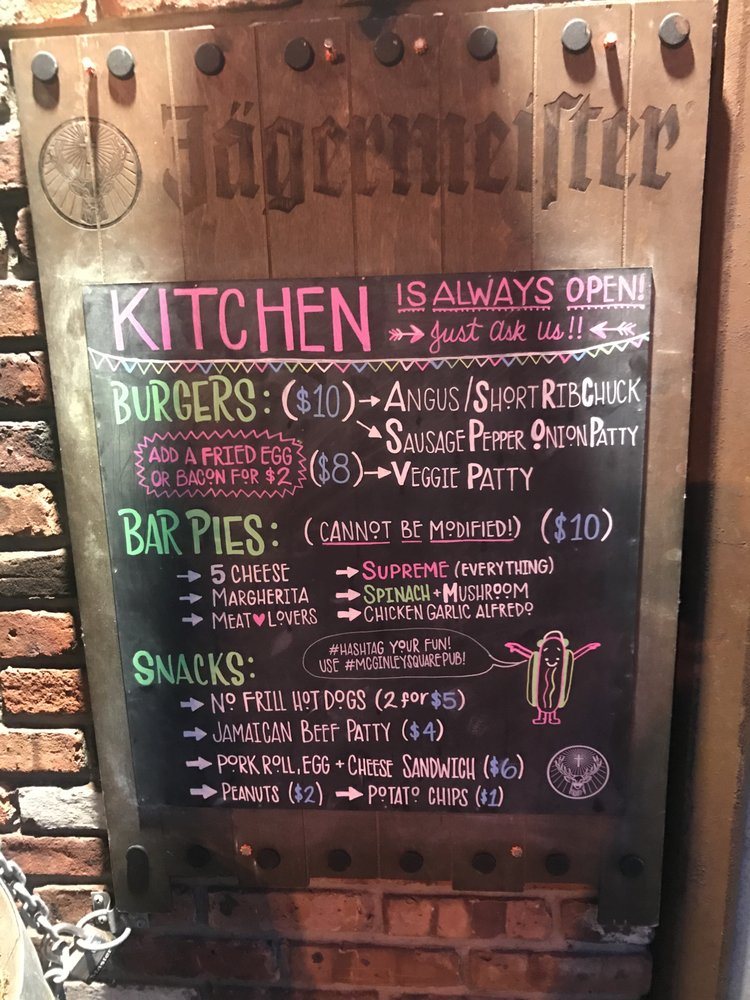 Jägermeister
KITCHEN IS ALWAYS OPEN!
Just ask us!!
BURGERS: ($10) → ANGUS/SHORT RIB CHUCK
SAUSAGE PEPPER ONION PATTY
ADD A FRIED EGG
OR BACON FOR $2
($8) → VEGGIE PATTY
BAR PIES: (CANNOT BE MODIFIED!) ($10)
→ 5 CHEESE → SUPREME (EVERYTHING)
→ MARGHERITA → SPINACH + MUSHROOM
→ MEAT♥LOVERS → CHICKEN GARLIC ALFREDO
#HASHTAG YOUR FUN!
USE #MCGINLEYSQUAREPUB!
SNACKS:
→ NO FRILL HOT DOGS (2 for $5)
→ JAMAICAN BEEF PATTY ($4)
→ PORK ROLL, EGG + CHEESE SANDWICH ($6)
→ PEANUTS ($2) → POTATO CHIPS ($1)